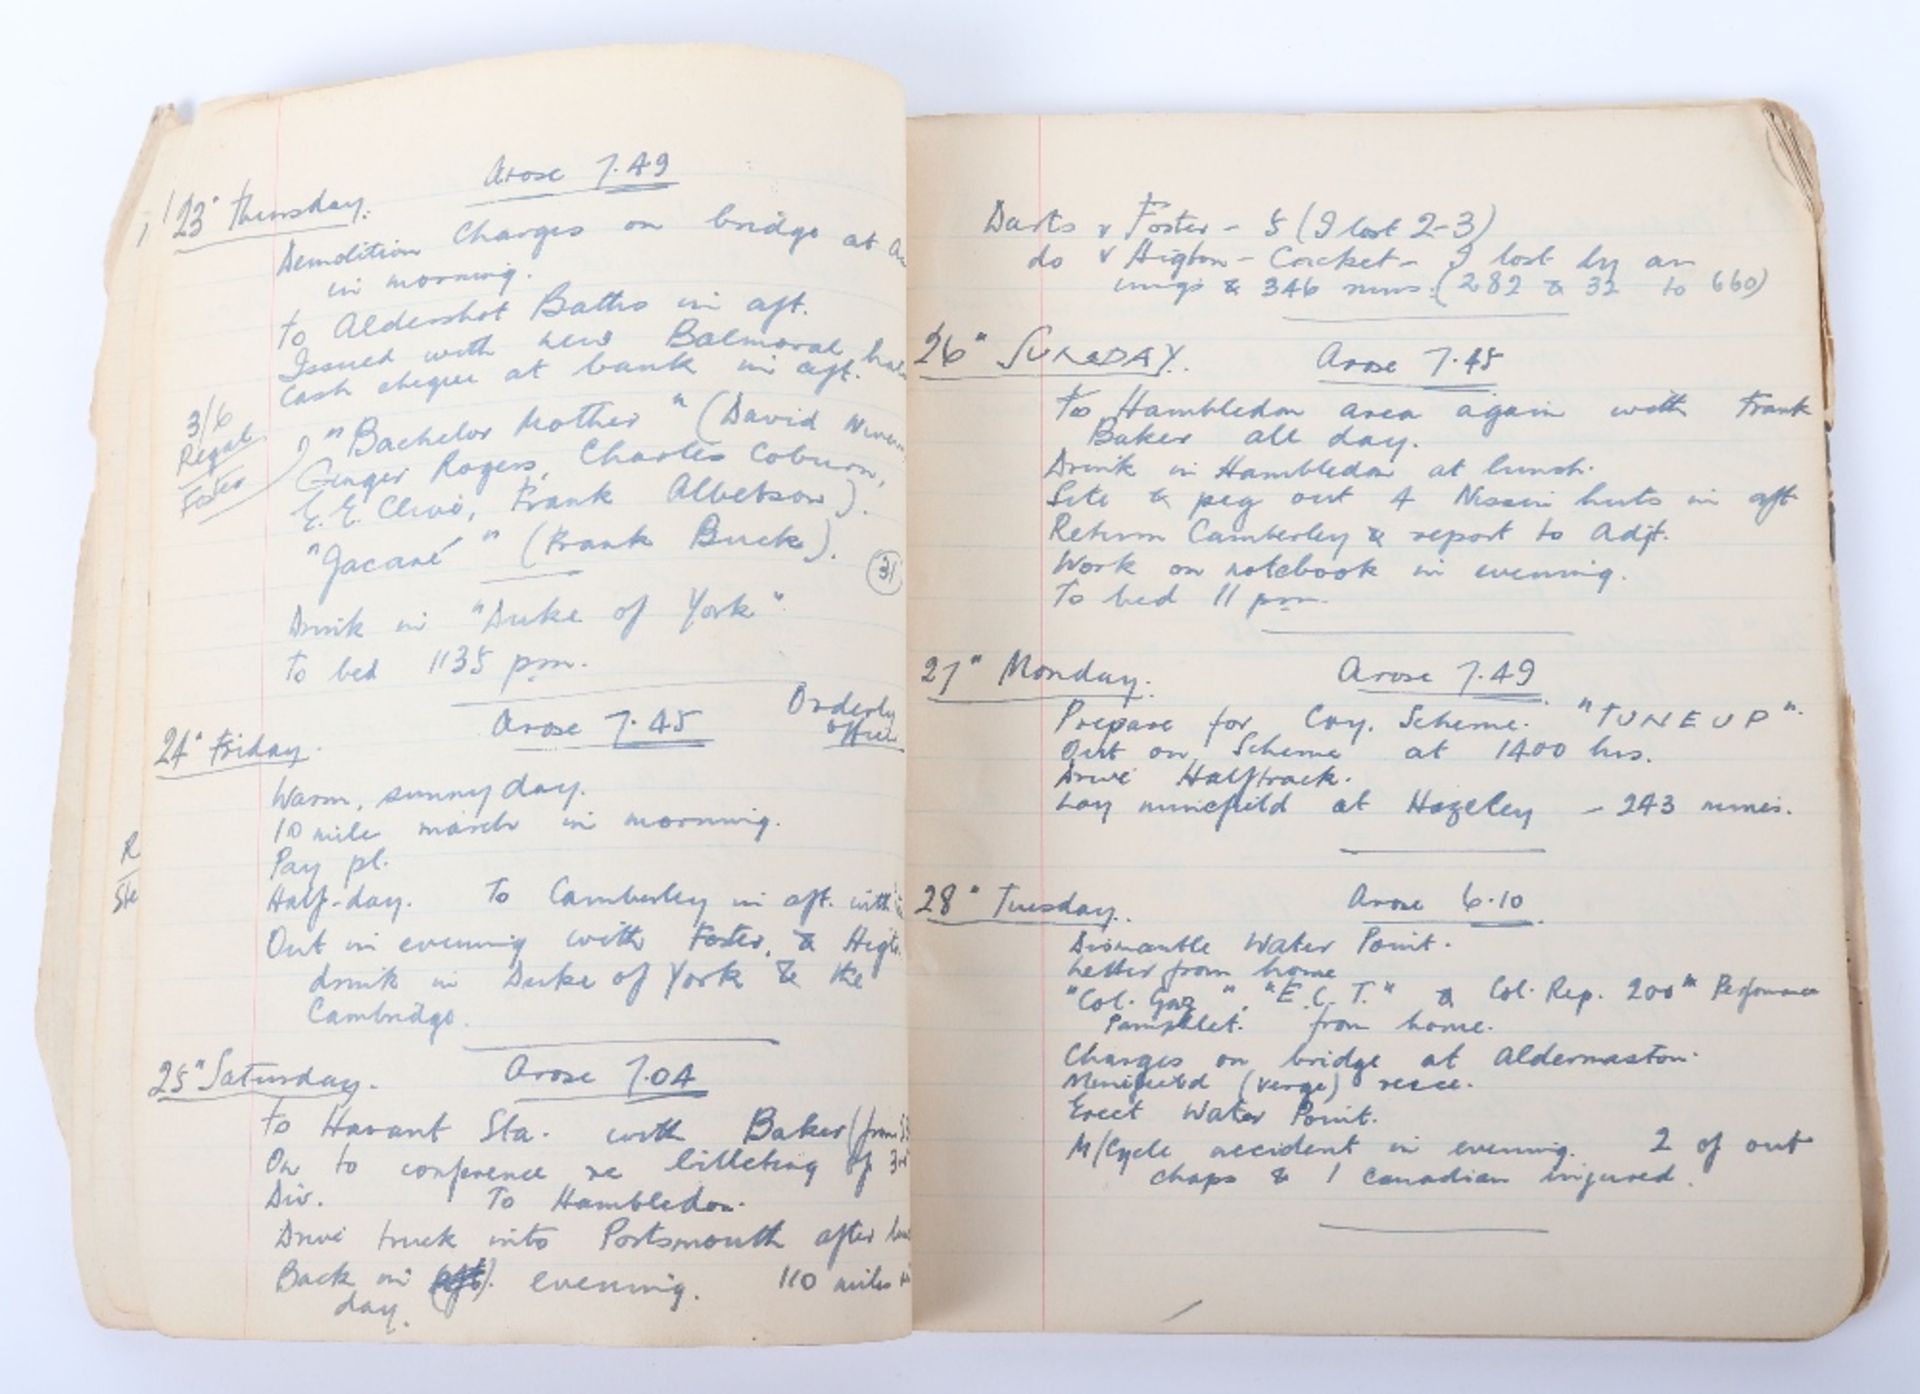 Arose 7.49
23" Thursday.
Demolition Charges on bridge at
in morning.
To Aldershot Baths in aft.
Issued with new Balmoral
Cash cheque at bank in aft.
3/6
Regal
Foster
"Bachelor Mother" (David Niven
Ginger Rogers, Charles Coburn,
E. E. Clive, Frank Albertson).
"Jacaré" (Frank Buck).
31
Drink in "Duke of York"
To bed 1135 pm.
Arose 7.45 Orderly
Officer
24" Friday.
Warm, sunny day.
10 mile march in morning.
Pay pl.
Half-day. To Camberley in aft. with
Out in evening with Foster, &
drink in Duke of York & the
Cambridge.
R
Ste
25" Saturday. Arose 7.04
To Havant Sta. with Baker (from
On to conference re billeting of 3rd
Div. To Hambledon.
Drive truck into Portsmouth after
Back in (aft). evening. 110 miles
day.
Darts v Foster - 5 (I lost 2-3)
do v Higton - Cricket - I lost by an
inngs & 346 runs. (282 & 32 to 660)
26" SUNDAY. Arose 7.45
To Hambledon area again with Frank
Baker all day.
Drink in Hambledon at lunch.
Site & peg out 4 Nissen huts in aft
Return Camberley & report to Adjt.
Work on notebook in evening.
To bed 11 pm.
27" Monday. Arose 7.49
Prepare for Coy. Scheme. "TUNEUP".
Out on Scheme at 1400 hrs.
Drive Halftrack.
Lay minefield at Hazeley - 243 mines.
28" Tuesday. Arose 6.10
Dismantle Water Point.
Letter from home
"Col. Gaz", "E.C.T." & Col. Rep. 200th Performance
Pamphlet. from home.
Charges on bridge at Aldermaston.
Minefield (verge) recce.
Erect Water Point.
M/Cycle accident in evening. 2 of out
chaps & 1 Canadian injured.